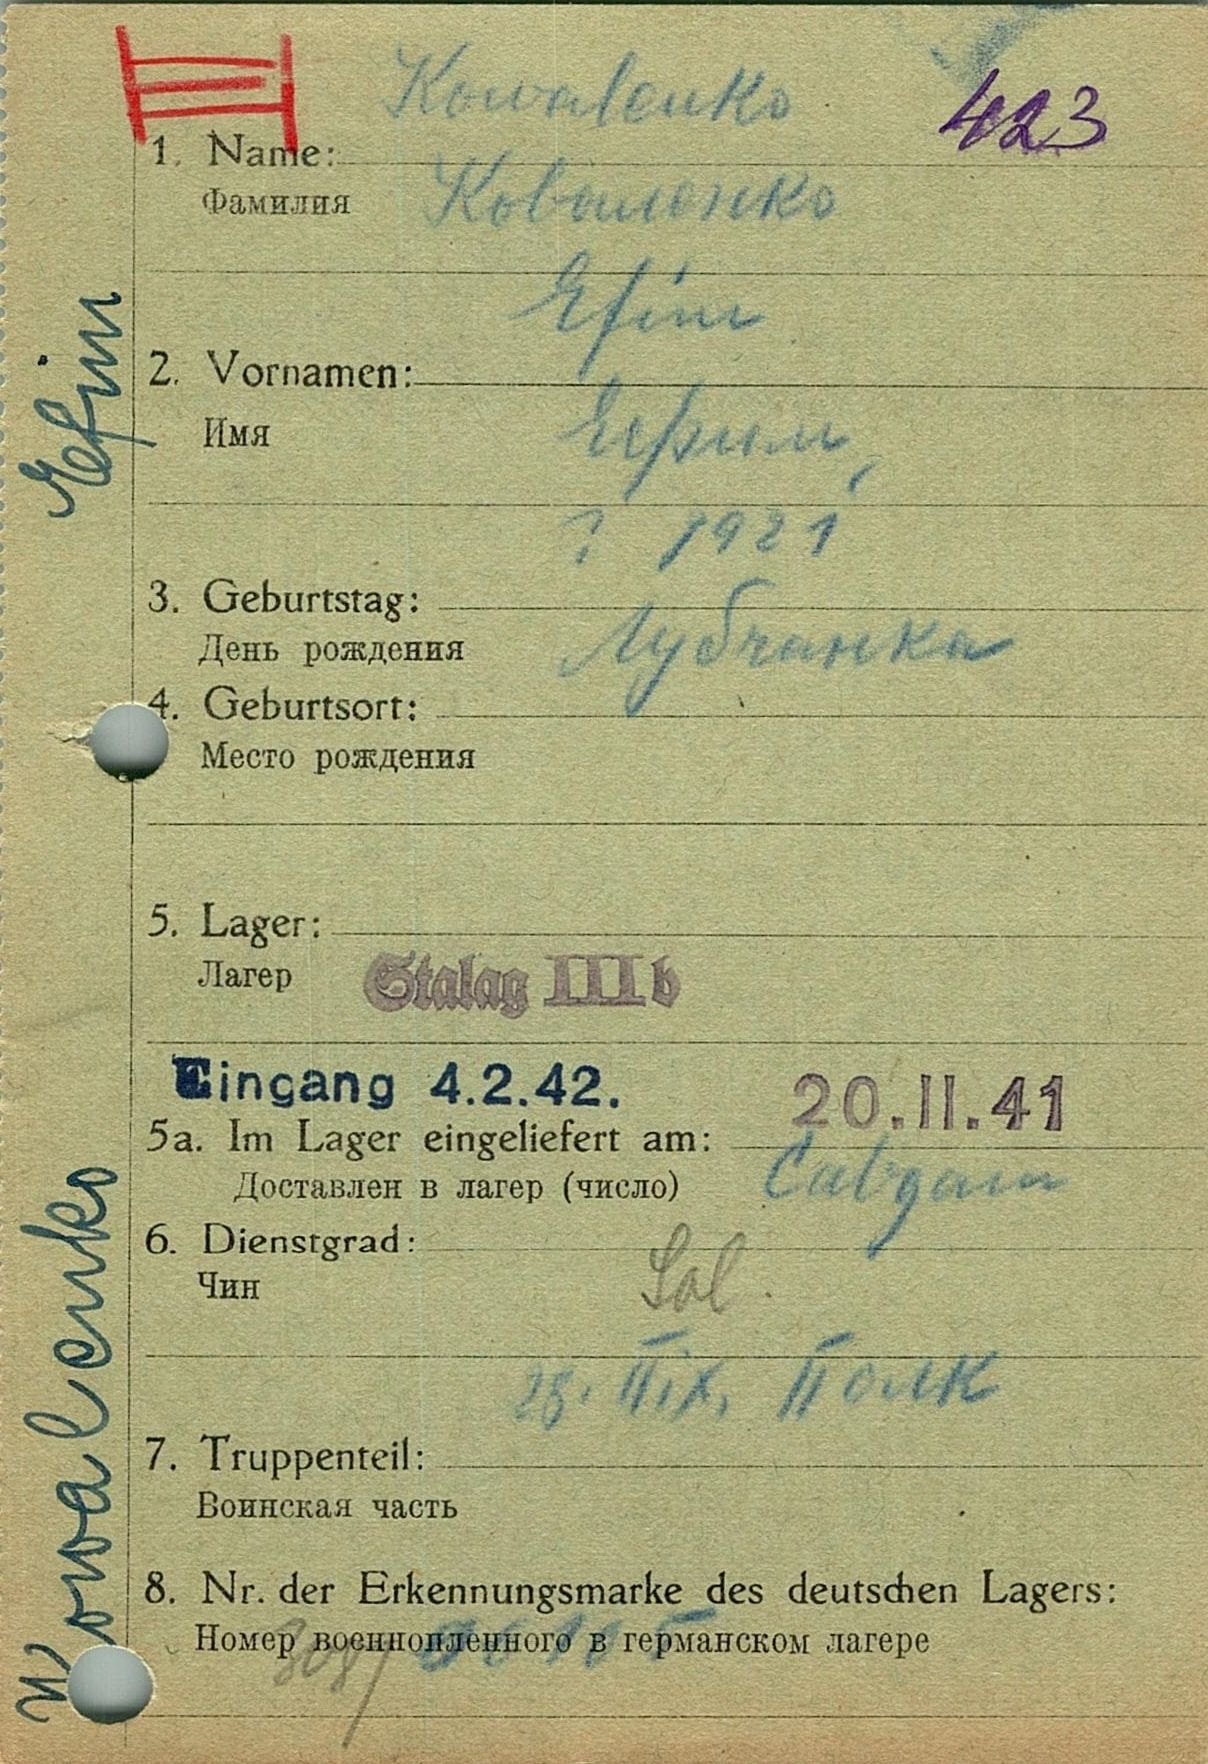 Kowalenko
423
1. Name:
Фамилия Коваленко
Efim
2. Vornamen:
Имя Ефим,
? 1921
3. Geburtstag:
День рождения Лубчанка
4. Geburtsort:
Место рождения
5. Lager:
Лагер Stalag III b
Eingang 4.2.42. 20.II.41
5a. Im Lager eingeliefert am:
Доставлен в лагер (число)
6. Dienstgrad: Sol.
Чин
25. полк
7. Truppenteil:
Воинская часть
8. Nr. der Erkennungsmarke des deutschen Lagers:
Номер военнопленного в германском лагере
Kowalenko
Efim